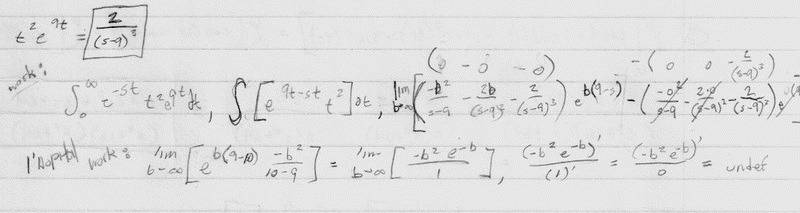 t² e^{9t} = 2/(s-9)³
(0 - 0 - 0) - (0 0 - 2/(s-9)³)
work: ∫₀^∞ e^{-st} t² e^{9t} dt, ∫[e^{9t-st} t²] dt, lim b→∞ [(-b²/(s-9) - 2b/(s-9)² - 2/(s-9)³) e^{b(9-s)} - (-0²/(s-9) - 2·0/(s-9)² - 2/(s-9)³) e^{0(9
l'hopital work: lim b→∞ [e^{b(9-10)} -b²/(10-9)] = lim b→∞ [-b² e^{-b}/1], (-b² e^{-b})'/(1)' = (-b² e^{-b})'/0 = undef